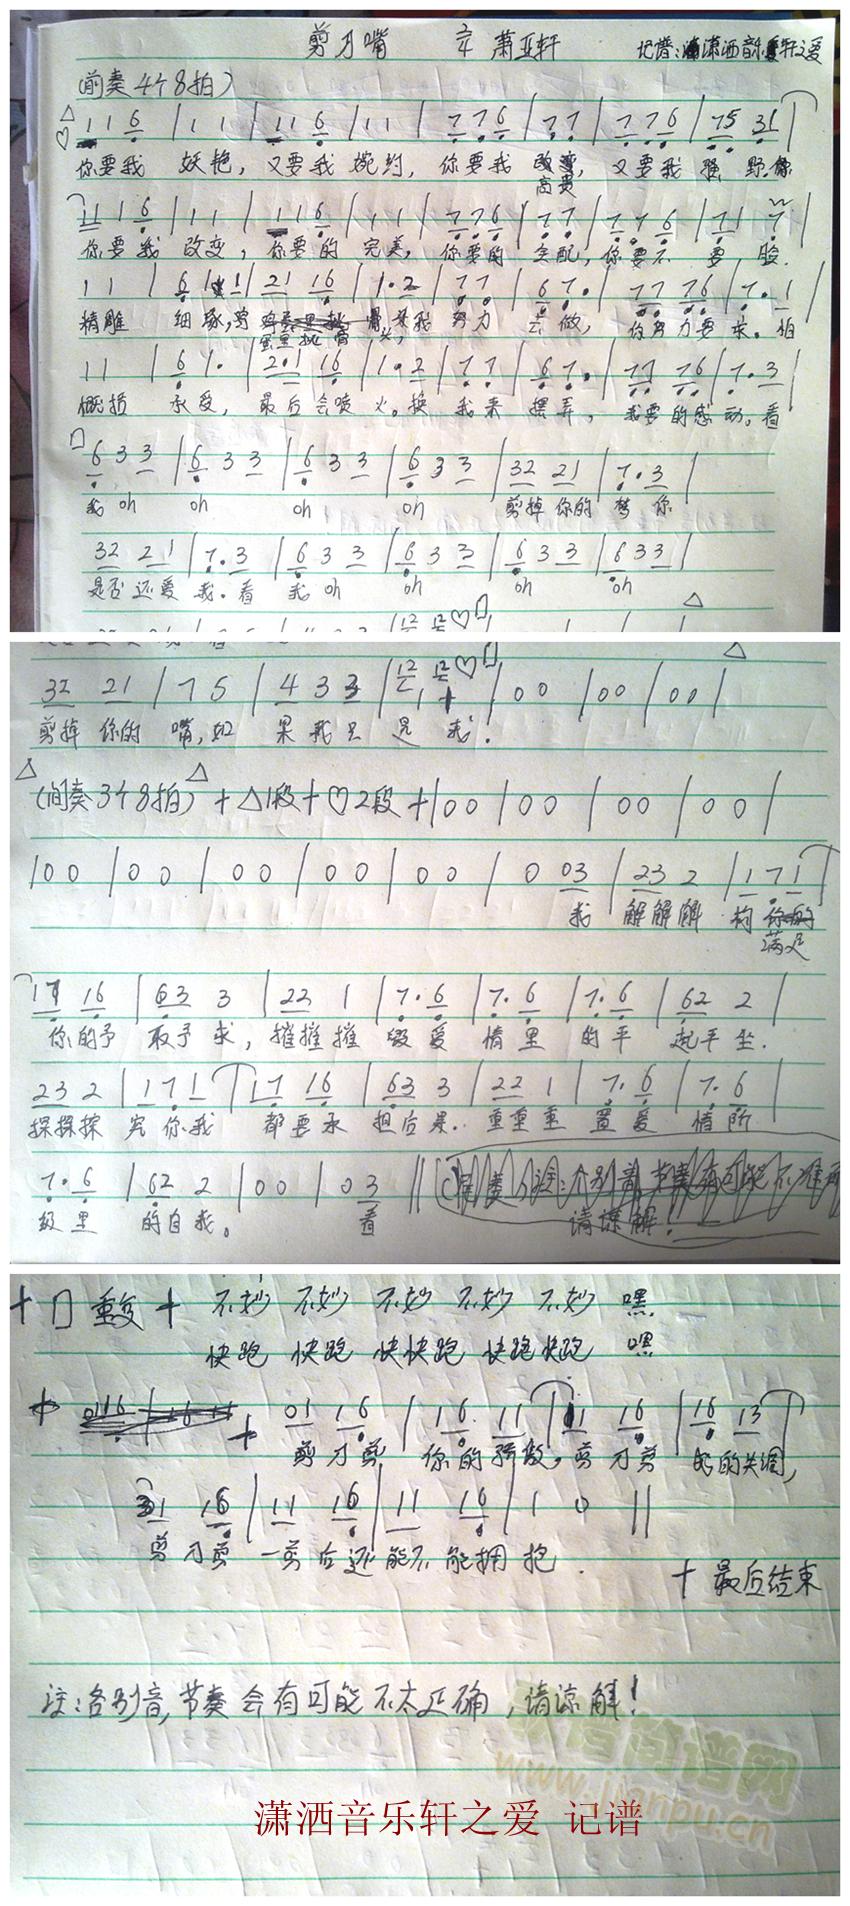 剪刀嘴 2/4 萧亚轩 记谱:潇洒音乐轩之爱
(前奏4个8拍)
1 1 6 | 1 1 | 1 1 6 | 1 1 | 7 7 6 | 7 7 | 7 7 6 | 7 5 3 1 |
你要我 妖艳, 又要我 婉约, 你要我 高贵, 又要我 野.你
11 1 6 | 1 1 | 1 1 6 | 1 1 | 7 7 6 | 7 7 | 7 7 6 | 7 1 7 |
你要我 改变, 你要的 完美, 你要的 全配, 你要不 要 脸.
1 1 | 6 1 1 | 21 16 | 1·2 | 7 7 | 6 7· | 77 76 | 7·1 |
精雕 细琢, 鸡蛋里挑骨头, 我 努力 去做, 你努力要求。怕
1 1 | 6 1· | 2·1 16 | 1·2 | 7 7 | 6 7· | 77 76 | 7·3 |
概括 承受, 最后会喷火。换 我来 摆弄, 我要的感动。看
6 3 3 | 6 3 3 | 6 3 3 | 6 3 3 | 32 21 | 7·3 |
我 oh oh oh oh 剪掉你的 梦 你
32 21 | 7·3 | 6 3 3 | 6 3 3 | 6 3 3 | 6 3 3 |
是否还爱 我.看 我 oh oh oh oh
32 21 | 7 5 | 4 3 3 | 12 12 | 00 | 00 | 00 |
剪掉你的 嘴,如 果我只 是 我.
(间奏3个8拍)+△1段+♡2段+|00|00|00|00|
|00|00|00|00|00|0 03|23 2|1 7 1|
我 解解解 构你的
满足
17 16 | 63 3 | 22 1 | 7·6 | 7·6 | 7·6 | 62 2 |
你的予 取予求, 摧摧摧 毁爱 情里 的平 起平坐.
23 2 | 1 7 1 | 17 16 | 63 3 | 22 1 | 7·6 | 7·6 |
探探探 究你我 都要承 担后果. 重重重 置爱 情阶
7·6 | 62 2 | 00 | 0 3 || 注:个别音节奏有可能不准确
级里 的自我。 看 请谅解!
+ □ 重复 + 不妙 不妙 不妙 不妙 不妙 嘿
快跑 快跑 快快跑 快跑快跑 嘿
+ 01 16 | 16 11 | 11 16 | 16 13 |
剪刀剪 你的骄傲, 剪刀剪 的失调,
31 16 | 11 16 | 11 16 | 1 0 ||
剪刀剪 一剪后还 能不能拥抱.
+ 最后结束
注:各别音,节奏会有可能不太正确,请谅解!
歌谱简谱网
www.jianpu.cn
潇洒音乐轩之爱 记谱